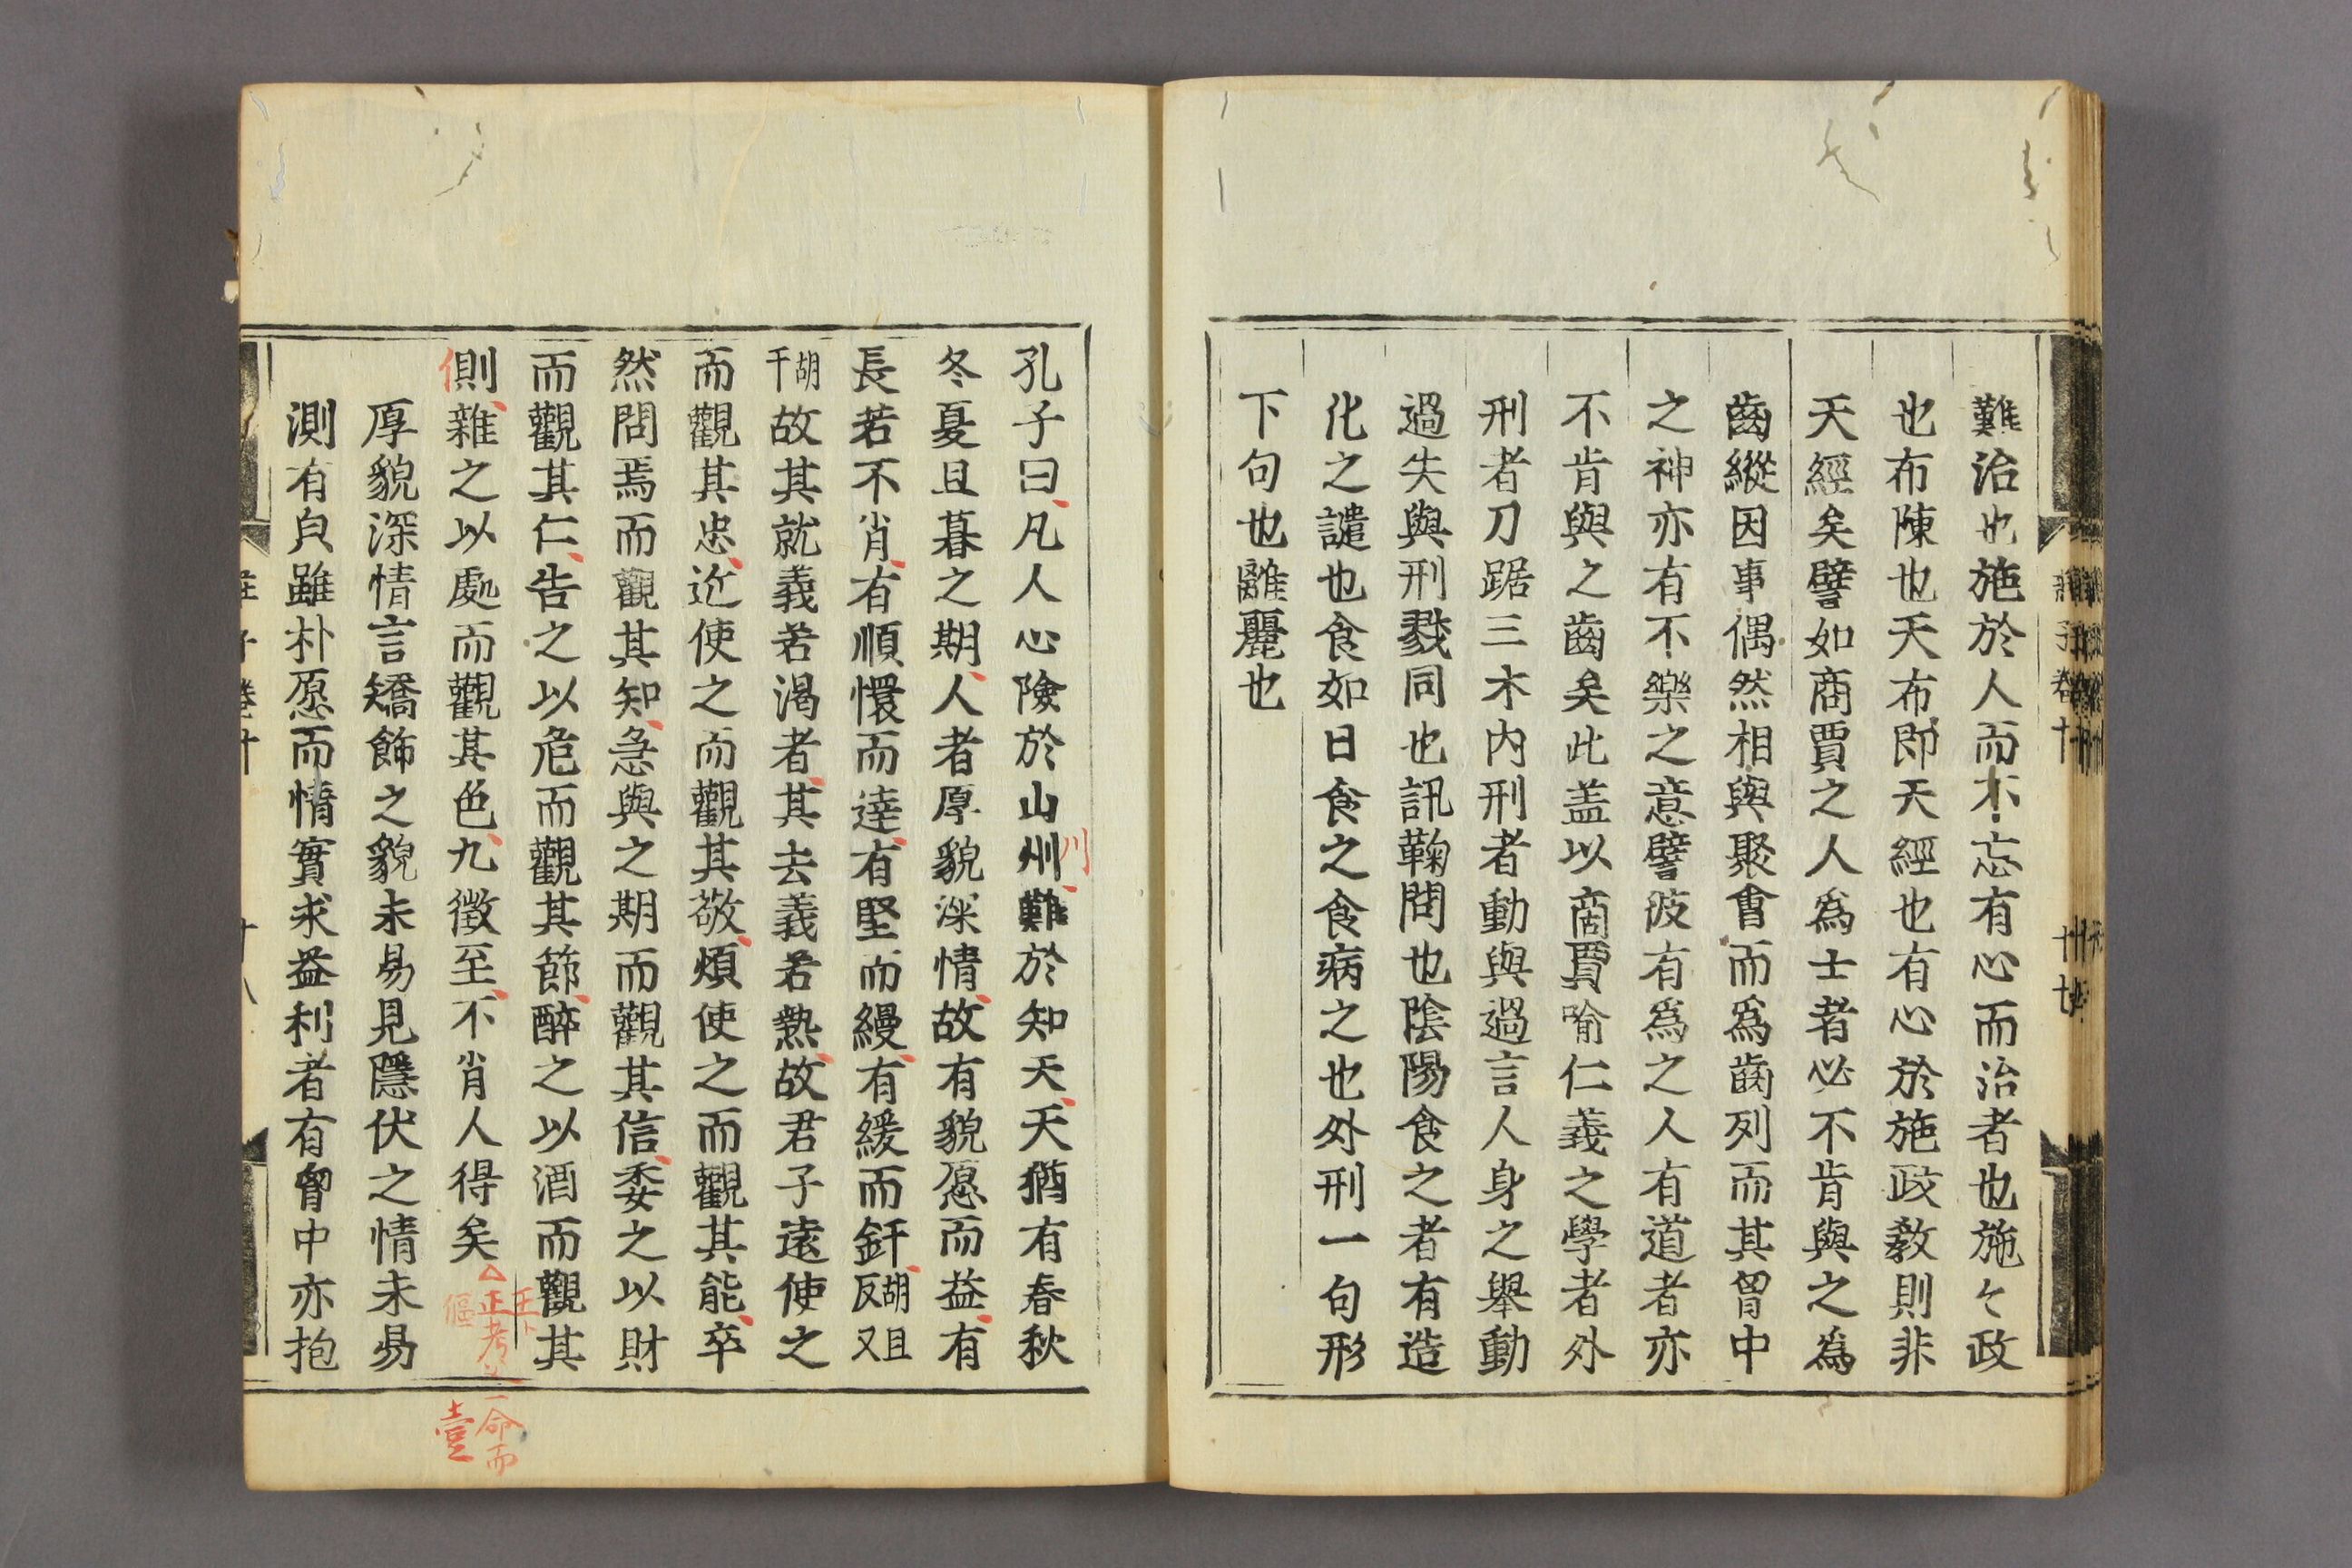 難治也施於人而不忘有心而治者也施々政
也布陳也天布即天經也有心於施政敎則非
天經矣譬如商賈之人爲士者必不肯與之爲
齒縱因事偶然相與聚會而爲齒列而其胷中
之神亦有不樂之意譬彼有爲之人有道者亦
不肯與之齒矣此盖以商賈喻仁義之學者外
刑者刀踞三木内刑者動與過言人身之舉動
過失與刑戮同也訊鞠問也陰陽食之者有造
化之譴也食如日食之食病之也外刑一句形
下句也離麗也
孔子曰凡人心險於山州難於知天天猶有春秋
川
冬夏且暮之期人者厚貌深情故有貌愿而益有
長若不肖有順懁而達有堅而縵有緩而釬胡且反又
胡干故其就義若渴者其去義若熱故君子遠使之
而觀其忠近使之而觀其敬煩使之而觀其能卒
然問焉而觀其知急與之期而觀其信委之以財
而觀其仁告之以危而觀其節醉之以酒而觀其
側雜之以處而觀其色九徵至不肖人得矣
正考父一命而
傴
壹
厚貌深情言矯飾之貌未易見隱伏之情未易
測有皃雖朴愿而情實求益利者有胷中亦抱
莊子卷十
十八